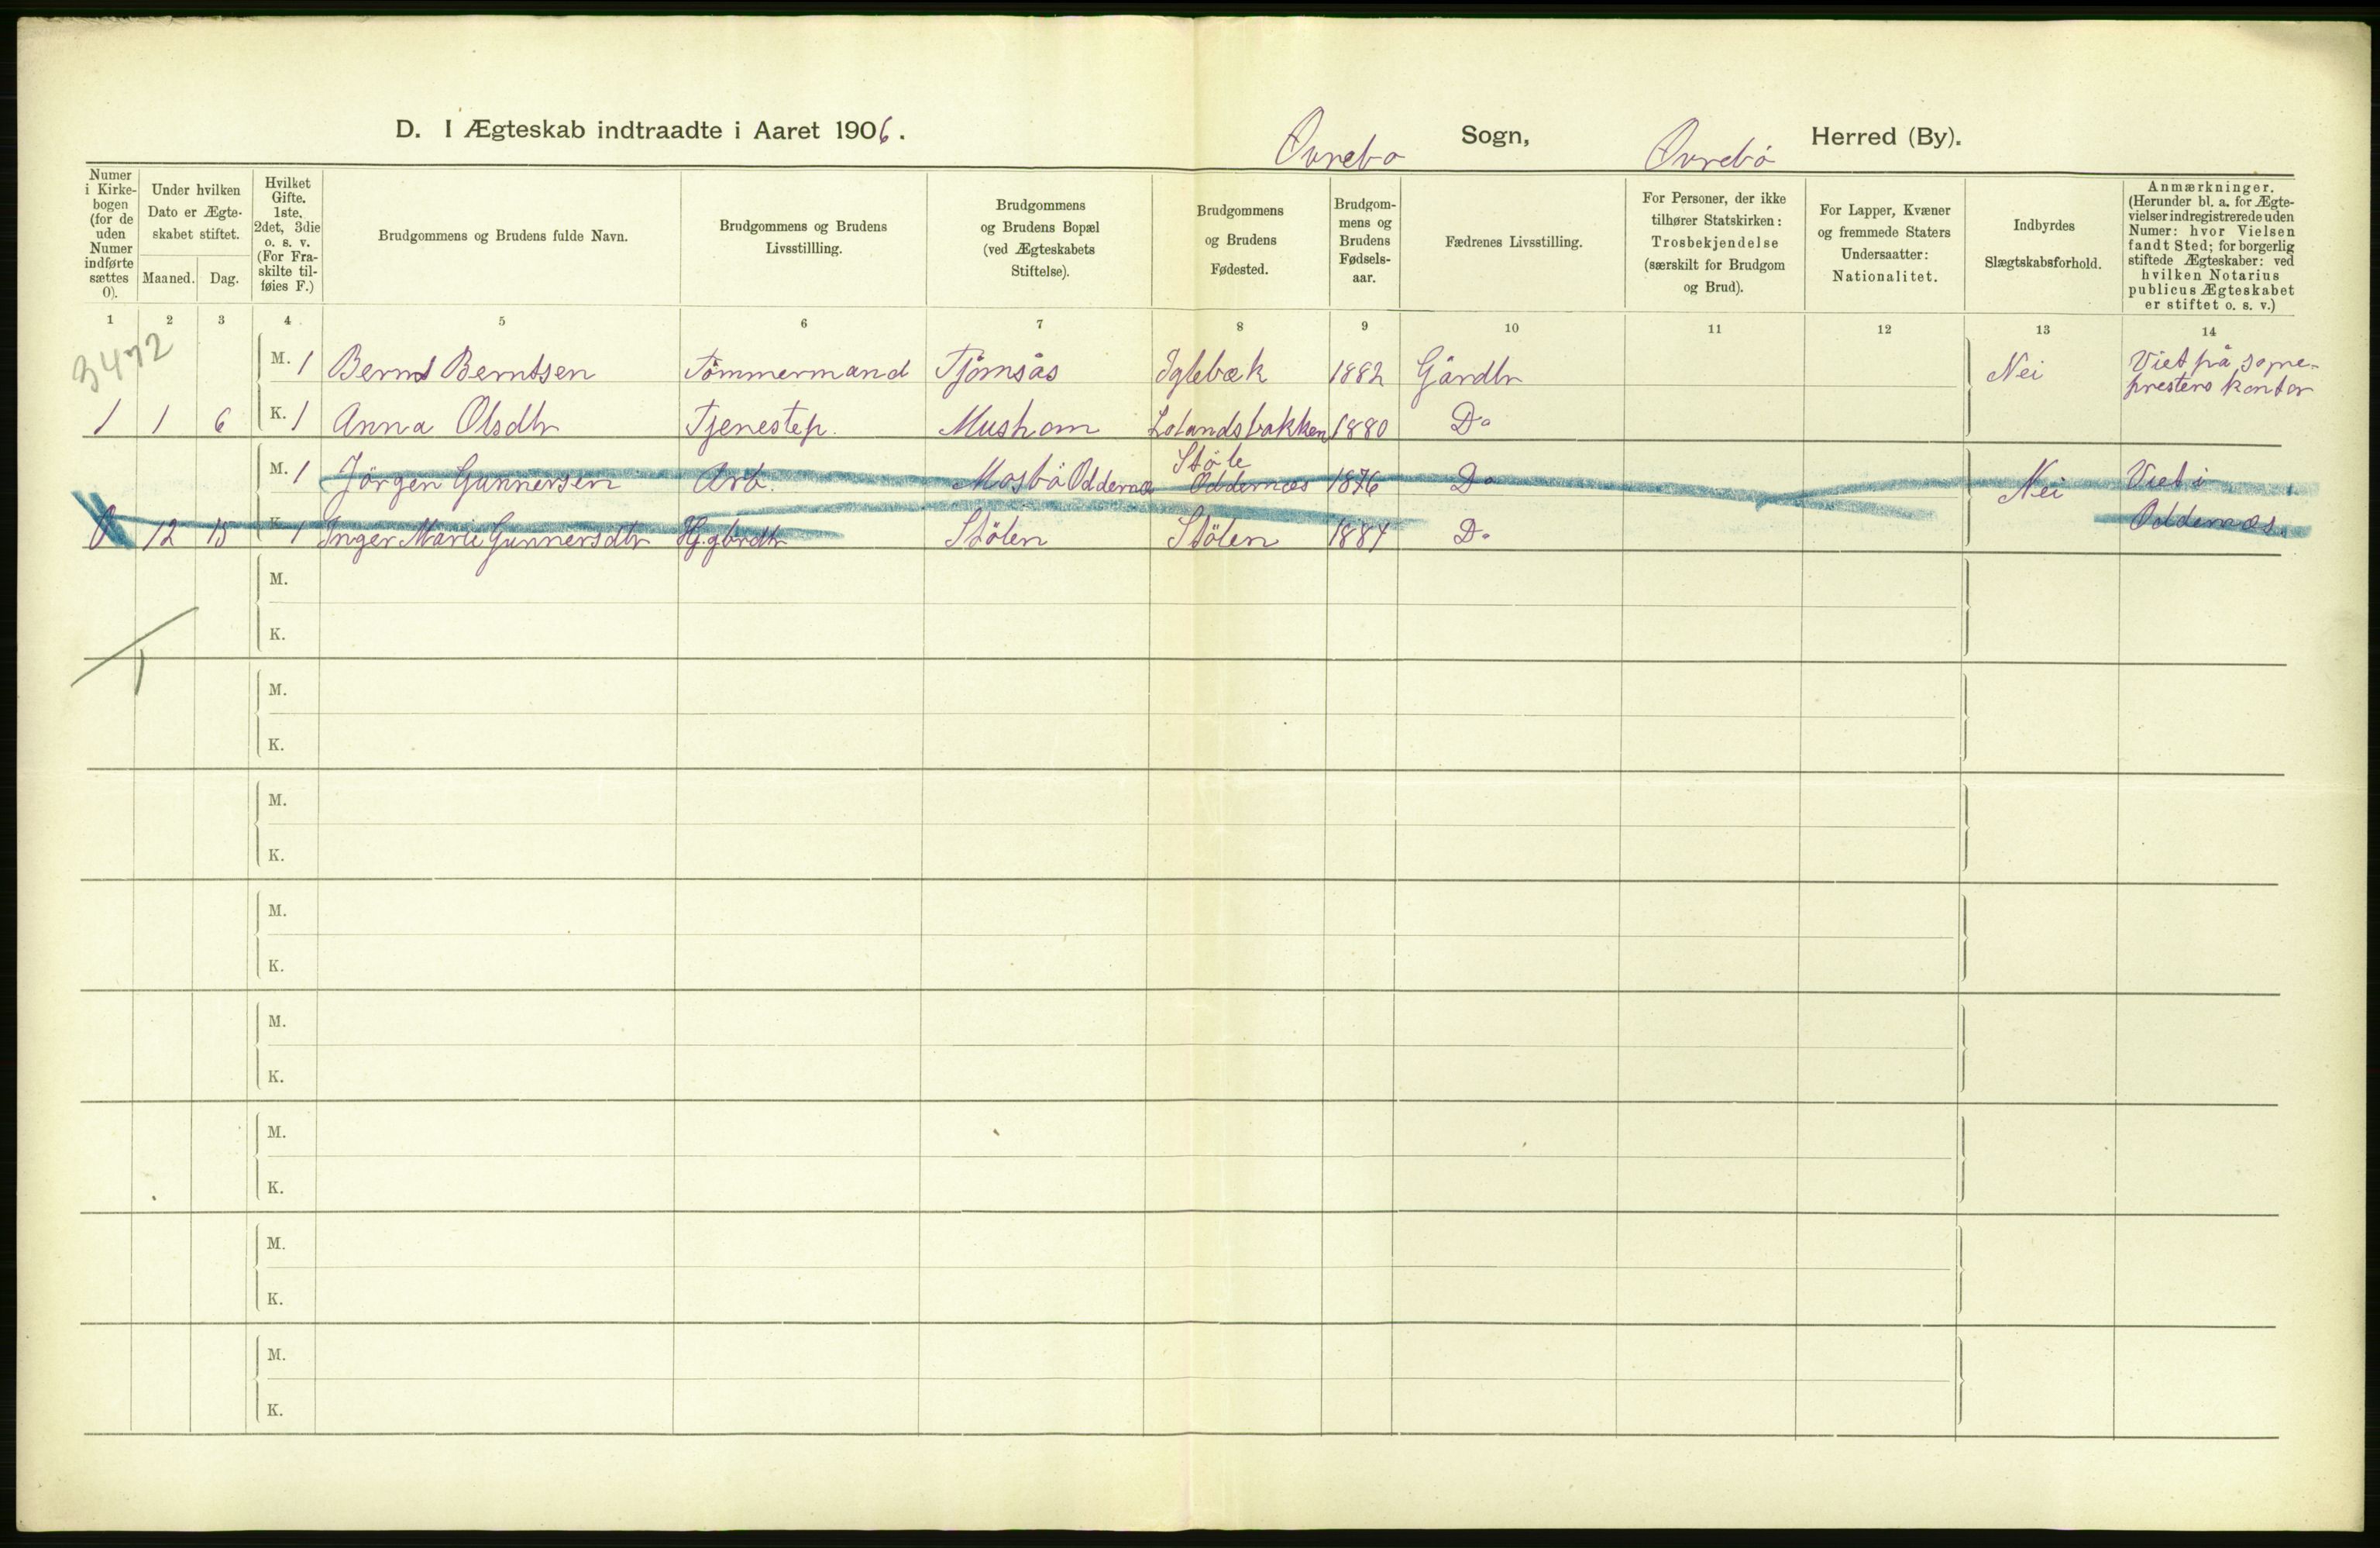 D. I Ægteskab indtraadte i Aaret 1906. Øvrebø Sogn, Øvrebø Herred (By).
Numer i Kirke-bogen (for de uden Numer indførte sættes 0).
Under hvilken Dato er Ægte-skabet stiftet.
Maaned. Dag.
Hvilket Gifte. 1ste, 2det, 3die o. s. v. (For Fra-skilte til-føies F.)
Brudgommens og Brudens fulde Navn.
Brudgommens og Brudens Livsstillling.
Brudgommens og Brudens Bopæl (ved Ægteskabets Stiftelse).
Brudgommens og Brudens Fødested.
Brudgom-mens og Brudens Fødsels-aar.
Fædrenes Livsstilling.
For Personer, der ikke tilhører Statskirken: Trosbekjendelse (særskilt for Brudgom og Brud).
For Lapper, Kvæner og fremmede Staters Undersaatter: Nationalitet.
Indbyrdes Slægtskabsforhold.
Anmærkninger. (Herunder bl. a. for Ægte-vielser indregistrerede uden Numer: hvor Vielsen fandt Sted; for borgerlig stiftede Ægteskaber: ved hvilken Notarius publicus Ægteskabet er stiftet o. s. v.)
1 2 3 4 5 6 7 8 9 10 11 12 13 14
3472
M. 1 Bernt Berntsen Tömmermand Tjomsås Iglebæk 1882 Gårdbr Nei Viet på sogne-
prestens kontor
1 1 6 K. 1 Anna Olsdtr Tjenestep. Mushom Lolandsbakken 1880 Do
M. 1 Jörgen Gunnersen Arb. Mosbö Oddernæs Støle Oddernæs 1876 Do Nei Viet i
0 12 15 K. 1 Inger Marie Gunnersdtr Stölen Stölen 1884 Do Oddernæs.
M.
K.
M.
K.
M.
K.
M.
K.
M.
K.
M.
K.
M.
K.
M.
K.